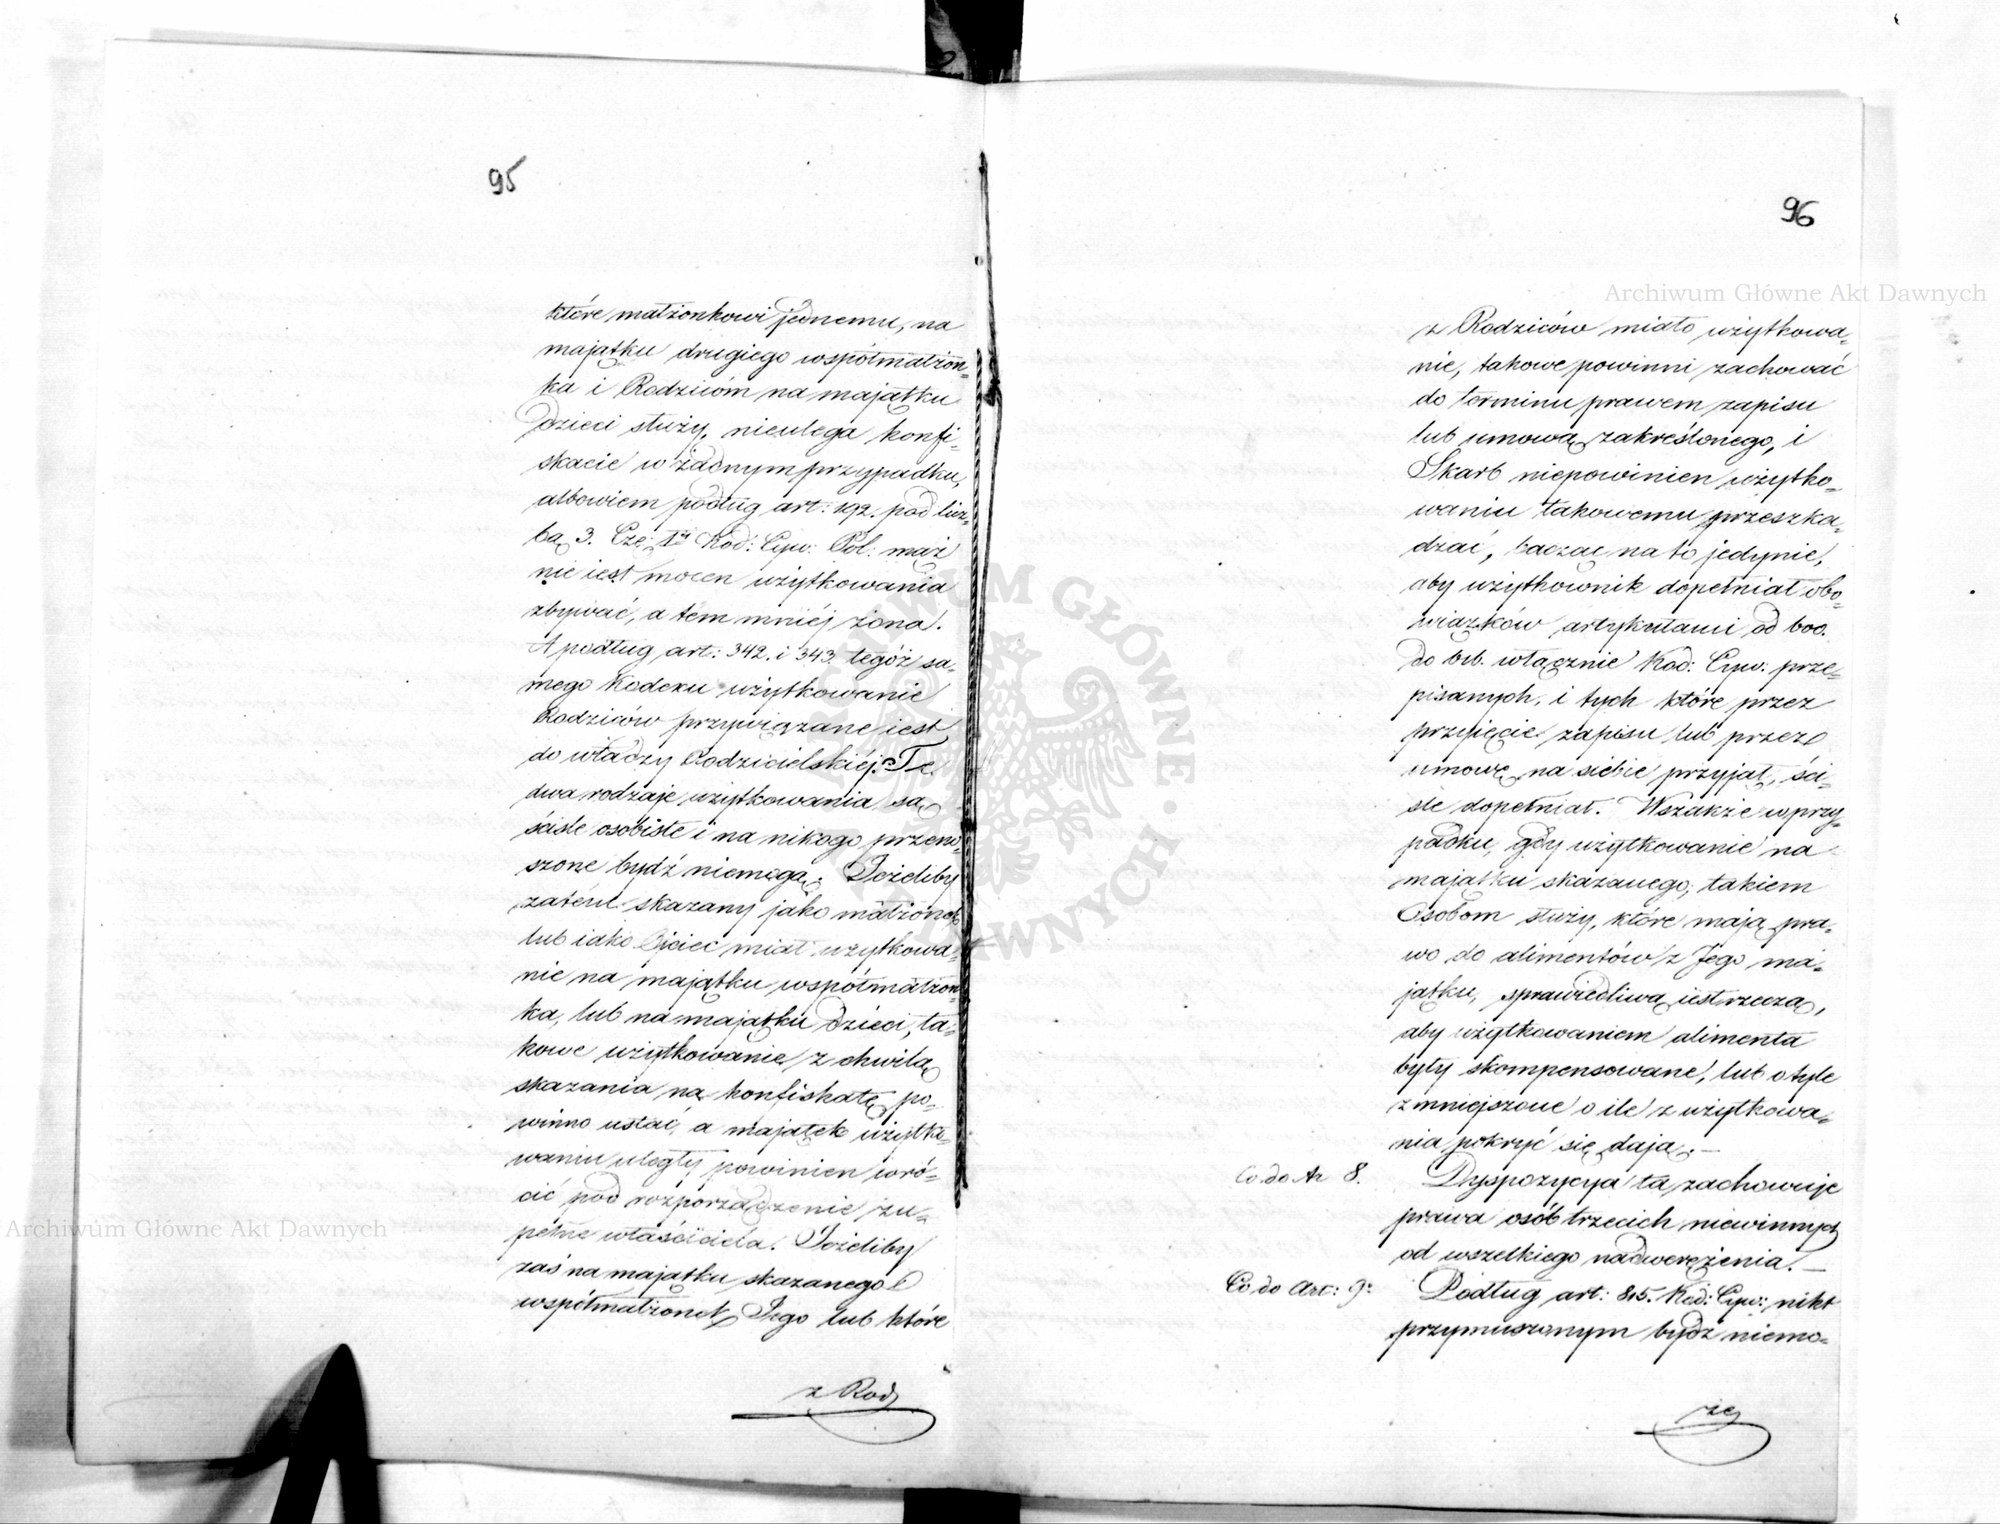 95
które małżonkowi jednemu, na
majątku drugiego współmałżon=
ka i Rodzicóm na majątku
dzieci służy, nieulega konfi=
skacie w żadnym przypadku,
albowiem podług art: 192. pod licz=
bą 3. Czę: 1éj Kod: Cyw: Pol: mąż
nie iest mocen użytkowania
zbywać, a tém mniéj żona.
A podług art: 342. i 343. tegóż sa=
mego Kodexu użytkowanie
Rodziców przywiązane iest
do władzy Rodzicielskiéj. Te
dwa rodzaje użytkowania są
ściśle osobiste i na nikogo przeno=
szone bydź niemogą. Jeżeliby
zatém skazany jako małżonek
lub iako Ojciec miał użytkowa=
nie na majątku współmałżon=
ka, lub na majątku dzieci, ta=
kowe użytkowanie z chwilą
skazania na konfiskatę po=
winno ustać, a majątek użytko=
waniu uległy powinien wró=
cić pod rozporządzenie zu=
pełne właściciela. Jeżeliby
zaś na majątku skazanego
współmałżonek Jego lub które
z Rodz
96
z Rodziców miało użytkowa=
nie, takowe powinni zachować
do terminu prawem zapisu
lub umową zakreślonego, i
Skarb niepowinien użytko=
waniu takowemu przeszka=
dzać, bacząc na to jedynie,
aby użytkownik dopełniał obo=
wiązków artykułami od 600.
do 616. włącznie Kod: Cyw: prze=
pisanych, i tych które przez
przyięcie zapisu lub przez
umowę na siebie przyjął, ści=
śle dopełniał. Wszakże w przy=
padku, gdy użytkowanie na
majątku skazanego, takiem
Osobom służy, które mają pra=
wo do alimentów z Jego ma=
jątku, sprawiedliwą iest rzeczą,
aby użytkowaniem alimenta
były skompensowane, lub o tyle
zmniejszone o ile z użytkowa=
nia pokryć się dają.—
Co do Ar 8. Dyspozycya ta zachowuje
prawa osób trzecich niewinnych
od wszelkiego nadwerężenia.—
Co do Art: 9. Podług art: 815. Kod: Cyw: nikt
przymuszonym bydź niemo=
że
Archiwum Główne Akt Dawnych
Archiwum Główne Akt Dawnych
ARCHIWUM GŁÓWNE AKT DAWNYCH